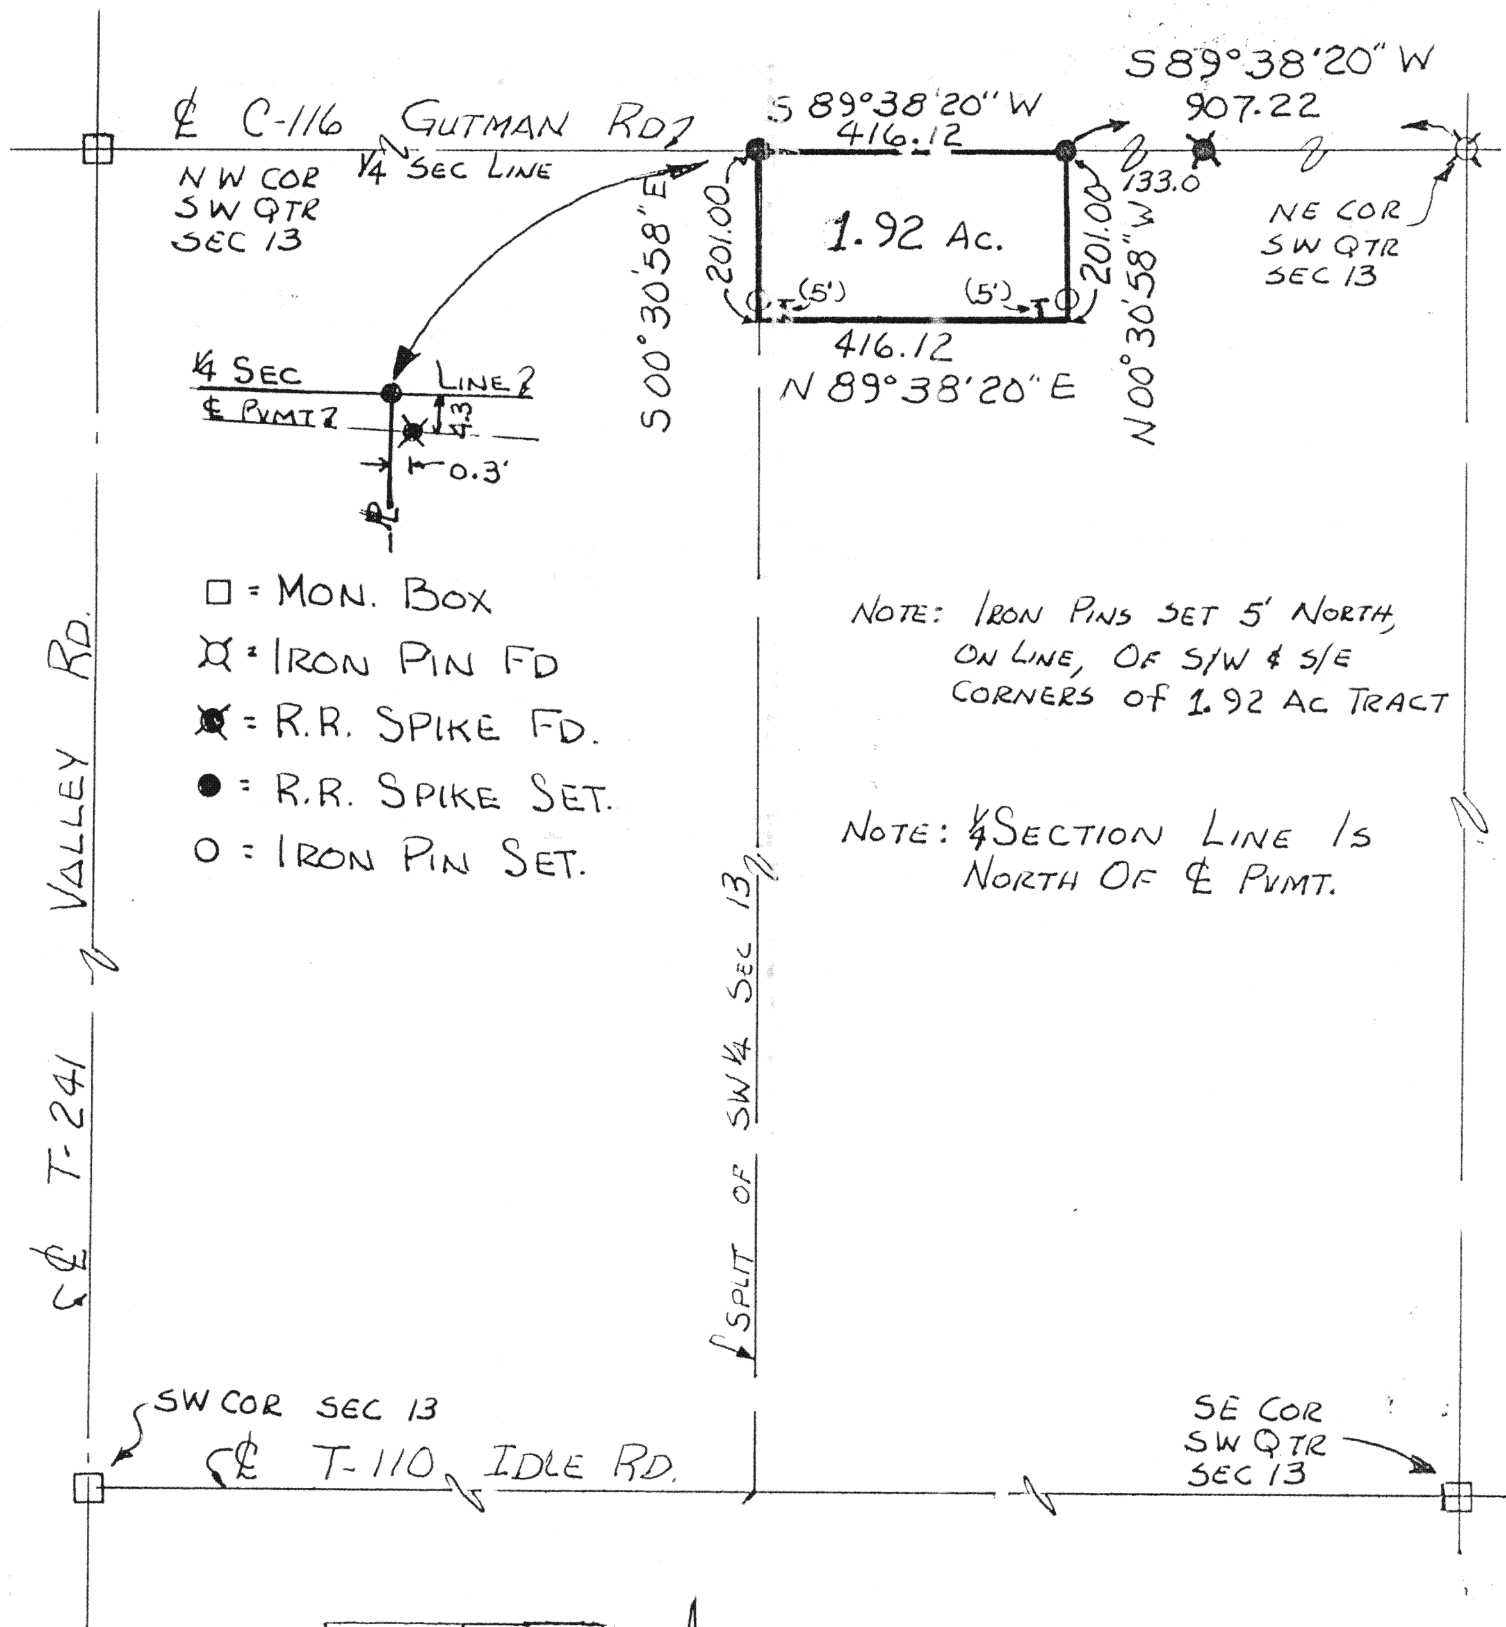 S 89°38'20" W
907.22
S 89°38'20" W
416.12
℄ C-116 GUTMAN RD
¼ SEC LINE
NW COR
SW QTR
SEC 13
133.0
NE COR
SW QTR
SEC 13
S 00°30'58" E
201.00
1.92 AC.
201.00
N 00°30'58" W
(5')
(5')
416.12
N 89°38'20" E
¼ SEC LINE
℄ PVMT
4.3
0.3'
℄
□ = MON. BOX
= IRON PIN FD
= R.R. SPIKE FD.
● = R.R. SPIKE SET.
○ = IRON PIN SET.
NOTE: IRON PINS SET 5' NORTH,
ON LINE, OF S/W & S/E
CORNERS OF 1.92 AC TRACT
NOTE: ¼ SECTION LINE IS
NORTH OF ℄ PVMT.
VALLEY RD.
℄ T-241
SPLIT OF SW ¼ SEC 13
SW COR SEC 13
℄ T-110 IDLE RD.
SE COR
SW QTR
SEC 13